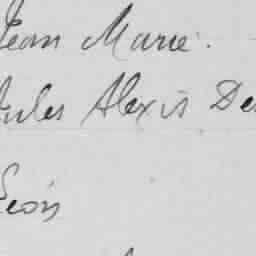 Jean Marie.
Jules Alexis De
Léon